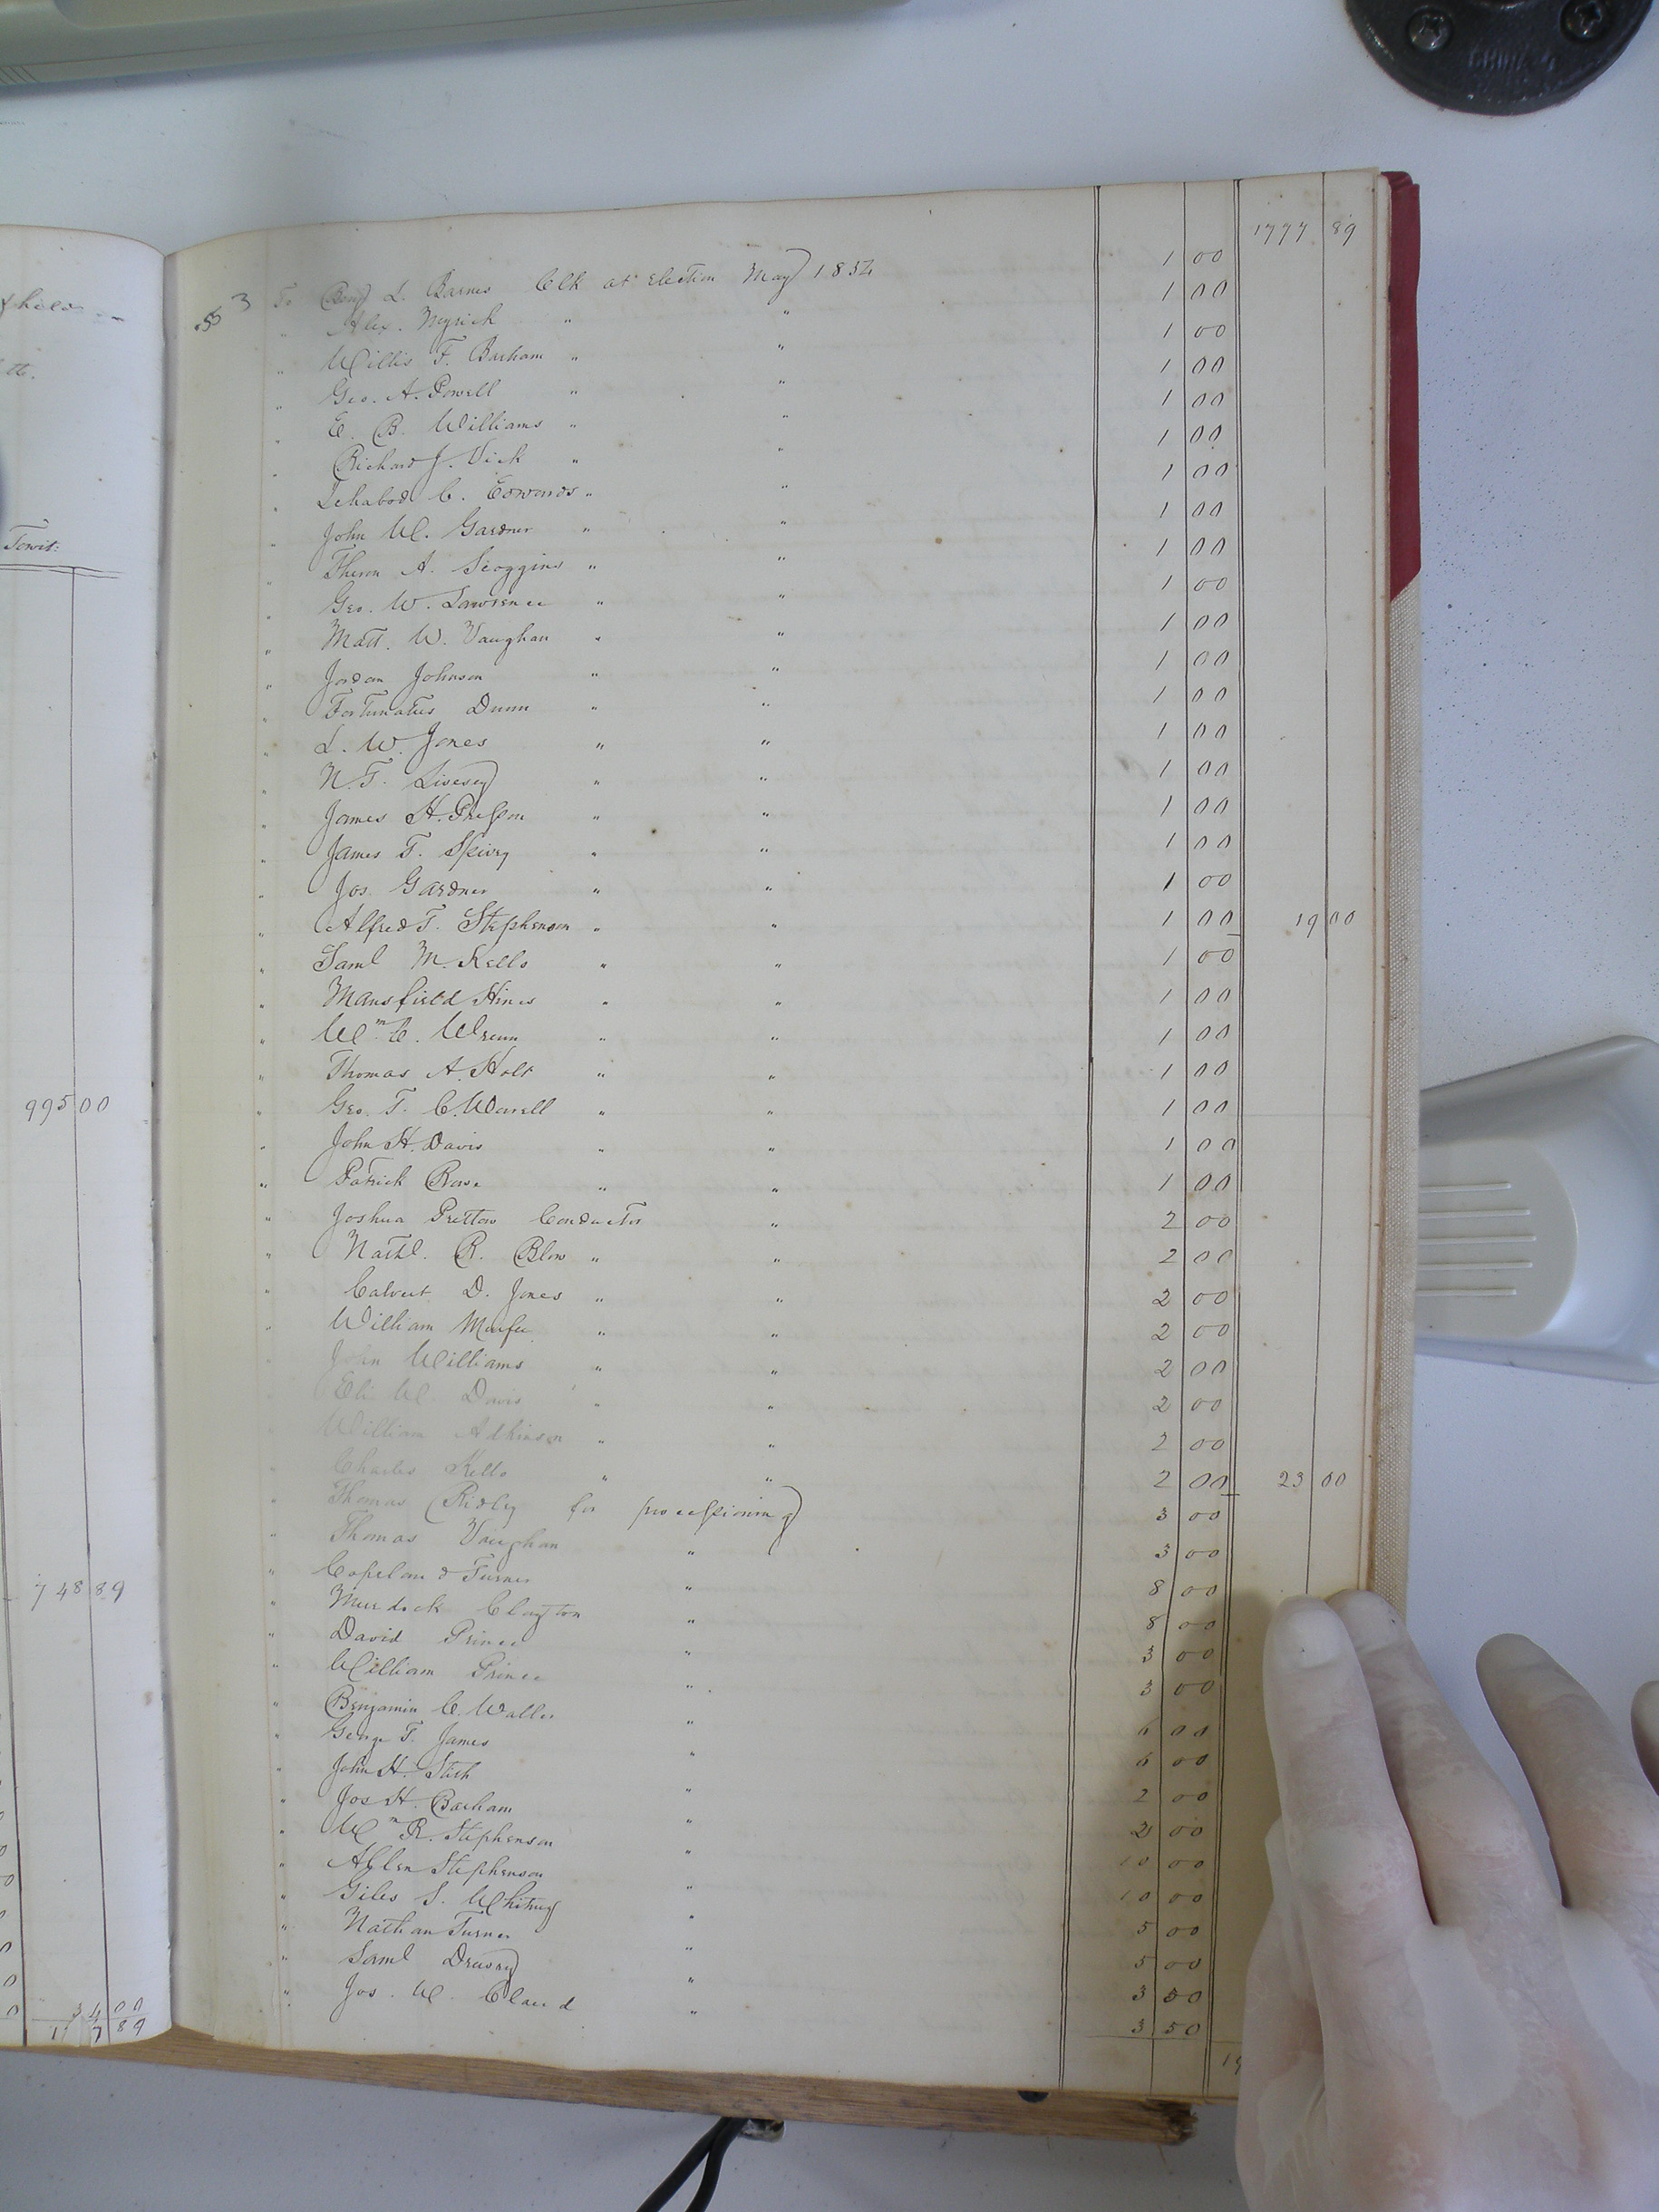 t held
tt.
Towit:
995 00
748 89
34 00
17 89
1777 89
53 To Benj L. Barnes Clk at Election May 1852 1 00
" Alex. Myrick " " 1 00
" Willis F. Barham " " 1 00
" Geo. A. Powell " " 1 00
" E. B. Williams " " 1 00
" Richard J. Vick " " 1 00
" Ichabod C. Edwards " " 1 00
" John W. Gardner " " 1 00
" Theron A. Scoggins " " 1 00
" Geo. W. Lawrence " " 1 00
" Matt. W. Vaughan " " 1 00
" Jordan Johnson " " 1 00
" Fortunatus Dunn " " 1 00
" L. W. Jones " " 1 00
" N. T. Livesey " " 1 00
" James H. Presson " " 1 00
" James T. Spivey " " 1 00
" Jos. Gardner " " 1 00
" Alfred T. Stephenson " " 1 00 19 00
" Saml M. Kello " " 1 00
" Mansfield Hines " " 1 00
" Wm C. Wrenn " " 1 00
" Thomas A. Holt " " 1 00
" Geo. T. C. Worrell " " 1 00
" John H. Davis " " 1 00
" Patrick Rose " " 1 00
" Joshua Pretlow Conductor " 2 00
" Nathl. R. Blow " " 2 00
" Calvert D. Jones " " 2 00
" William Murfee " " 2 00
" John Williams " " 2 00
" Eli W. Davis " " 2 00
" William Adkinson " " 2 00
" Charles Kello " " 2 00 23 00
" Thomas Ridley for processioning 3 00
" Thomas Vaughan " 3 00
" Copeland Turner " 8 00
" Murdock Clayton " 8 00
" David Prince " 3 00
" William Prince " 3 00
" Benjamin C. Waller " 6 00
" George T. James " 6 00
" John H. Stith " 2 00
" Jos H. Barham " 2 00
" Wm R. Stephenson " 10 00
" Allen Stephenson " 10 00
" Giles S. Whitney " 5 00
" Nathan Turner " 5 00
" Saml Drewry " 3 50
" Jos. W. Claud " 3 50
19